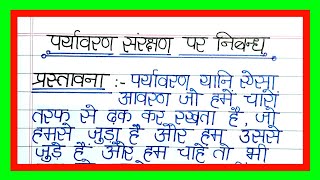 पर्यावरण संरक्षण पर निबन्ध
प्रस्तावना :- पर्यावरण यानि ऐसा
आवरण जो हमें चारों
तरफ से ढ़क कर रखता है, जो
हमसे जुड़ा है और हम उससे
जुड़े हैं, और हम चाहें तो भी